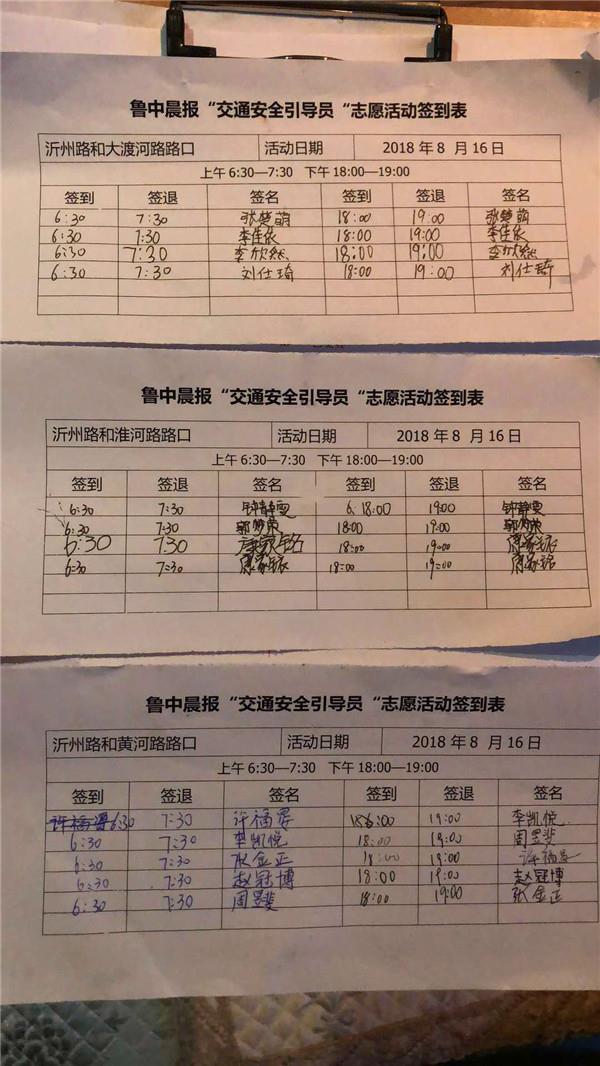 鲁中晨报“交通安全引导员“志愿活动签到表
沂州路和大渡河路路口 活动日期 2018 年 8 月 16 日
上午 6:30—7:30 下午 18:00—19:00
签到 签退 签名 签到 签退 签名
6:30 7:30 张楚萌 18:00 19:00 张楚萌
6:30 7:30 李佳依 18:00 19:00 李佳依
6:30 7:30 李欣然 18:00 19:00 李欣然
6:30 7:30 刘仕琦 18:00 19:00 刘仕琦
鲁中晨报“交通安全引导员“志愿活动签到表
沂州路和淮河路路口 活动日期 2018 年 8 月 16 日
上午 6:30—7:30 下午 18:00—19:00
签到 签退 签名 签到 签退 签名
6:30 7:30 钟静雯 18:00 19:00 钟静雯
6:30 7:30 18:00 19:00
6:30 7:30 康家铭 18:00 19:00
6:30 7:30 18:00 19:00 康家铭
鲁中晨报“交通安全引导员“志愿活动签到表
沂州路和黄河路路口 活动日期 2018 年 8 月 16 日
上午 6:30—7:30 下午 18:00—19:00
签到 签退 签名 签到 签退 签名
6:30 7:30 许福晏 19:00 李凯悦
6:30 7:30 李凯悦 18:00 19:00 周昱斐
6:30 7:30 张金正 18:00 19:00 许福晏
6:30 7:30 赵冠博 18:00 19:00 赵冠博
6:30 7:30 周昱斐 18:00 19:00 张金正